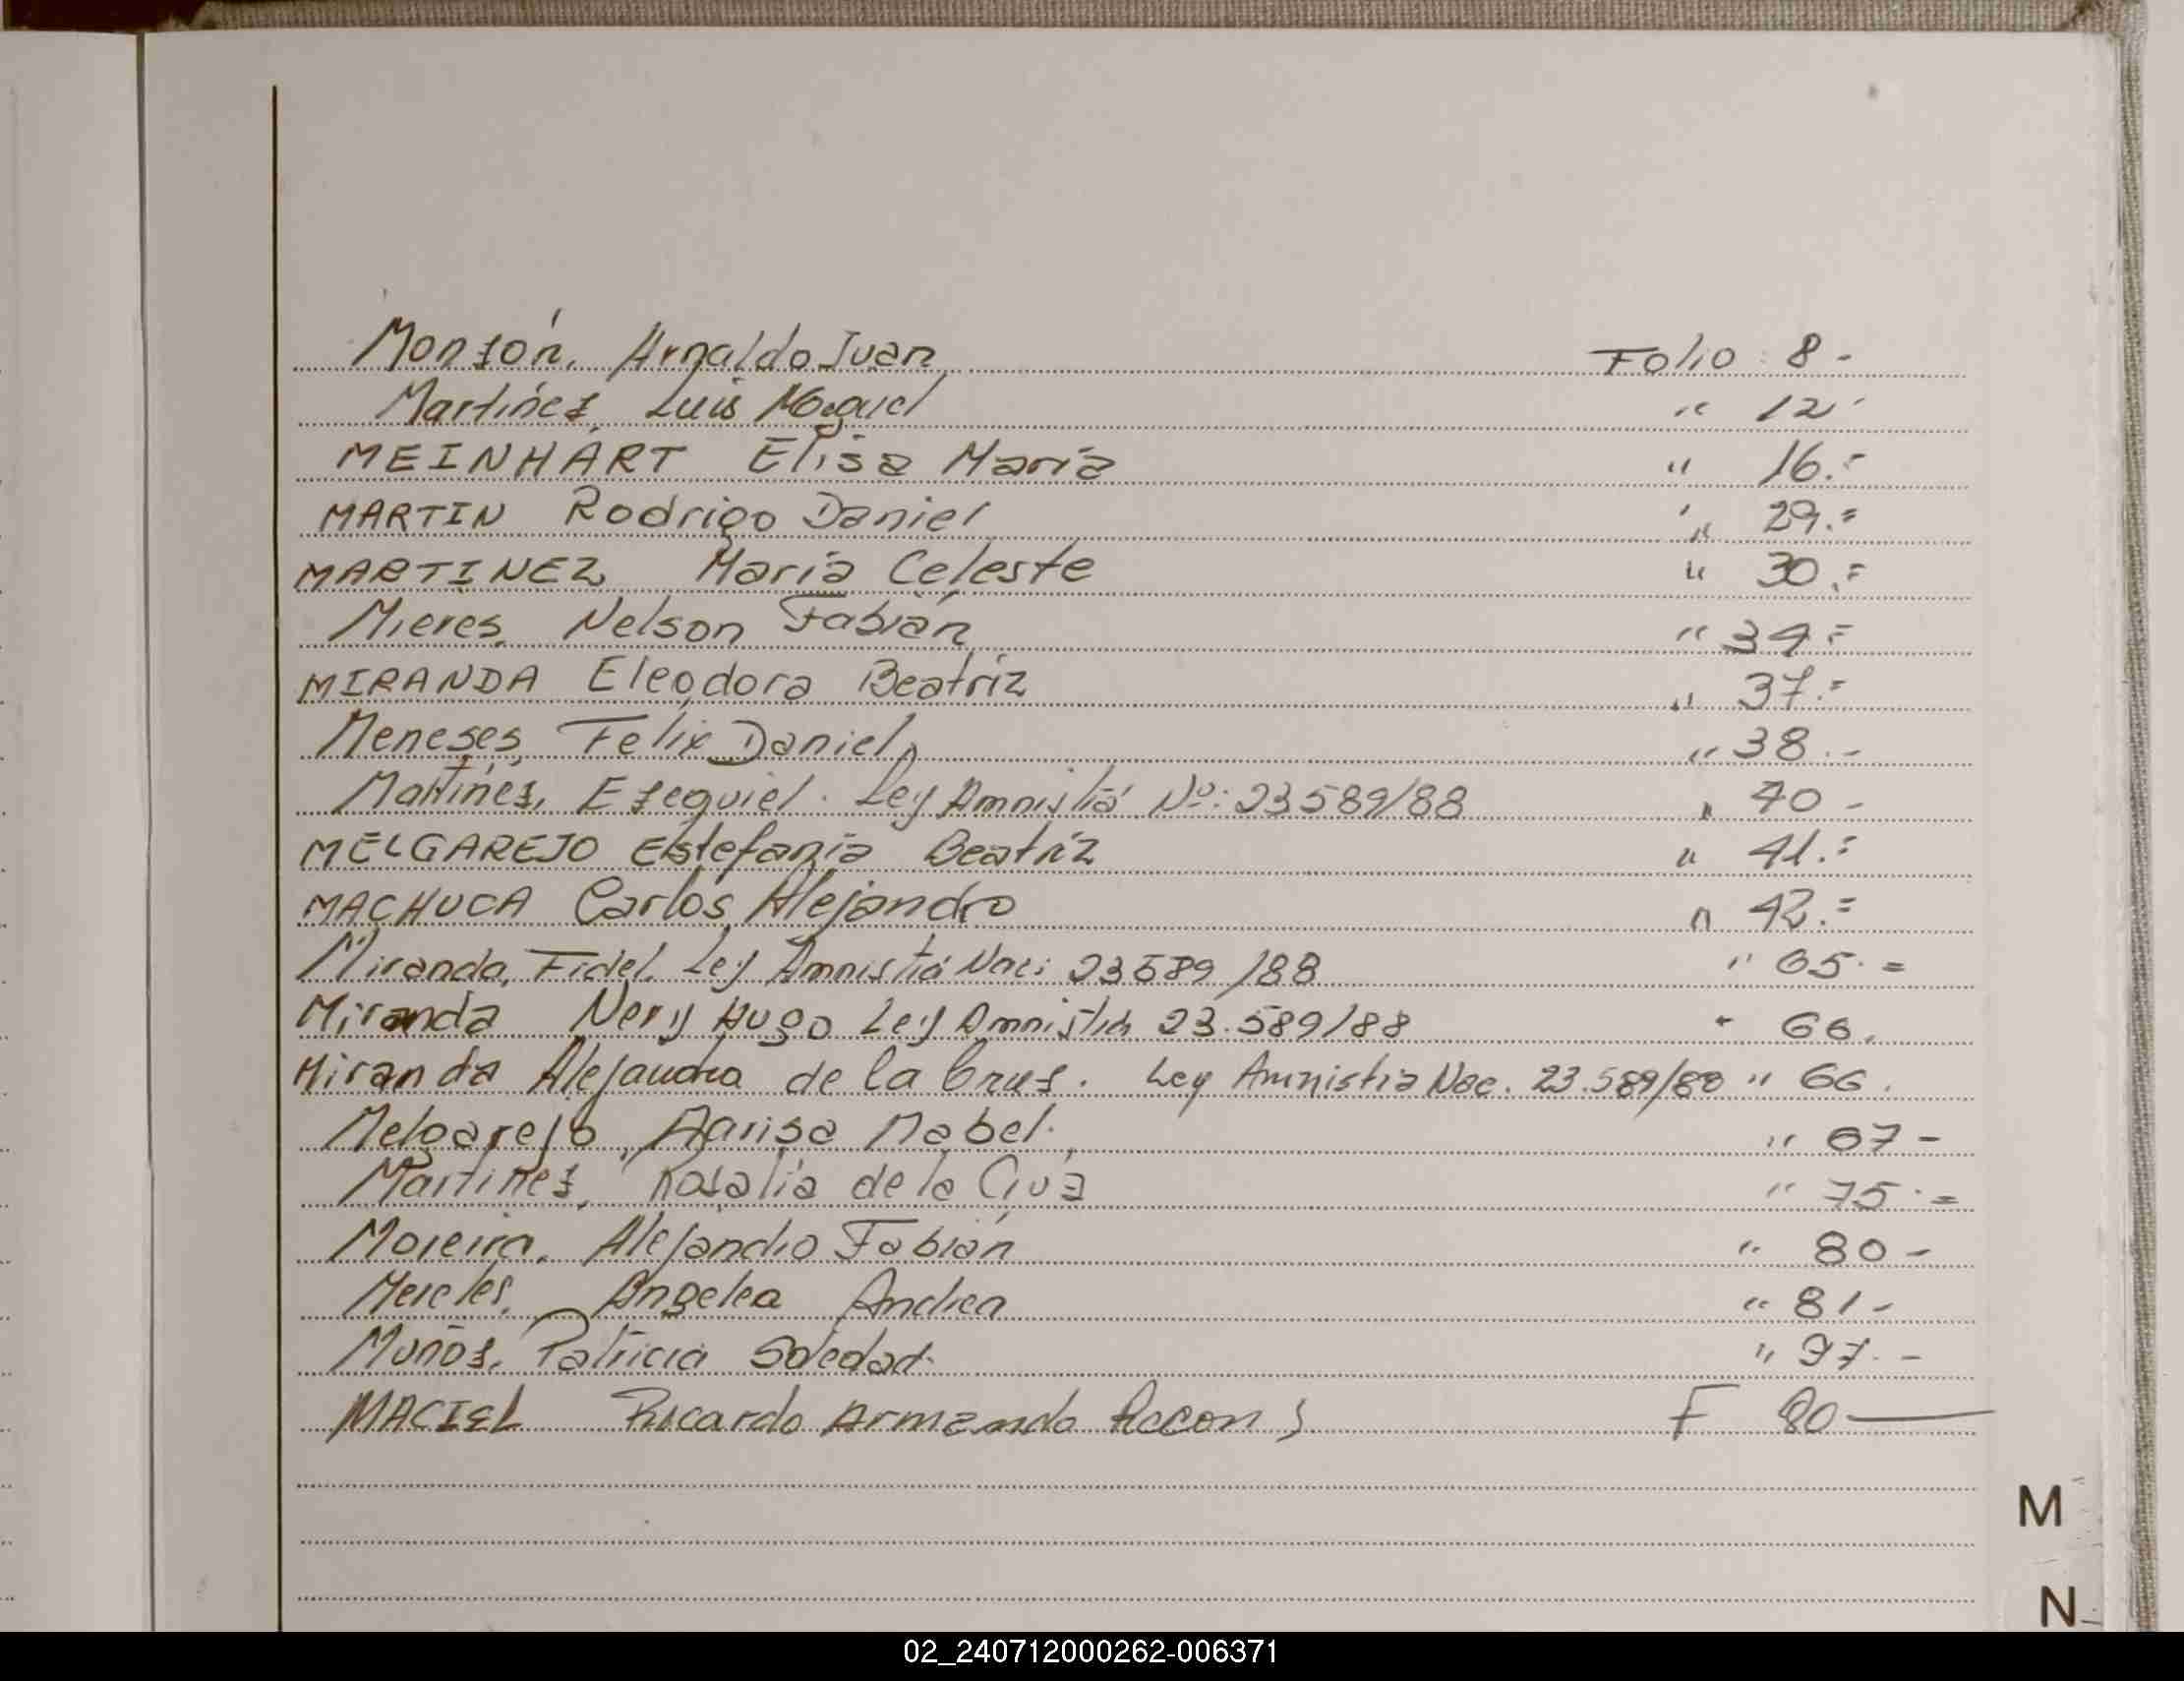 Monzón, Arnaldo Juan Folio 8 -
Martínez, Luis Miguel " 12
MEINHART Elisa María " 16.=
MARTIN Rodrigo Daniel " 29.=
MARTINEZ María Celeste " 30.=
Mieres, Nelson Fabián " 34=
MIRANDA Eleodora Beatriz " 37.=
Meneses, Felix Daniel " 38.-
Martínez, Ezequiel. Ley Amnistía Nº: 23589/88 " 40 -
MELGAREJO Estefanía Beatríz " 41.=
MACHUCA Carlos Alejandro " 42.=
Miranda, Fidel. Ley Amnistía Nac: 23589/88 " 65.=
Miranda Nery Hugo Ley Amnistia 23.589/88 " 66.
Miranda Alejandra de la Cruz. Ley Amnistia Nac. 23.589/88 " 66.
Melgarejo, Marisa Mabel. " 67-
Martínez, Rosalia de la " 75.=
Moreira, Alejandro Fabián " 80-
Mereles, Angelea Andrea " 81-
Muñoz, Patricia Soledad. " 97.-
MACIEL Ricardo Armando F 80
M
N
02_240712000262-006371